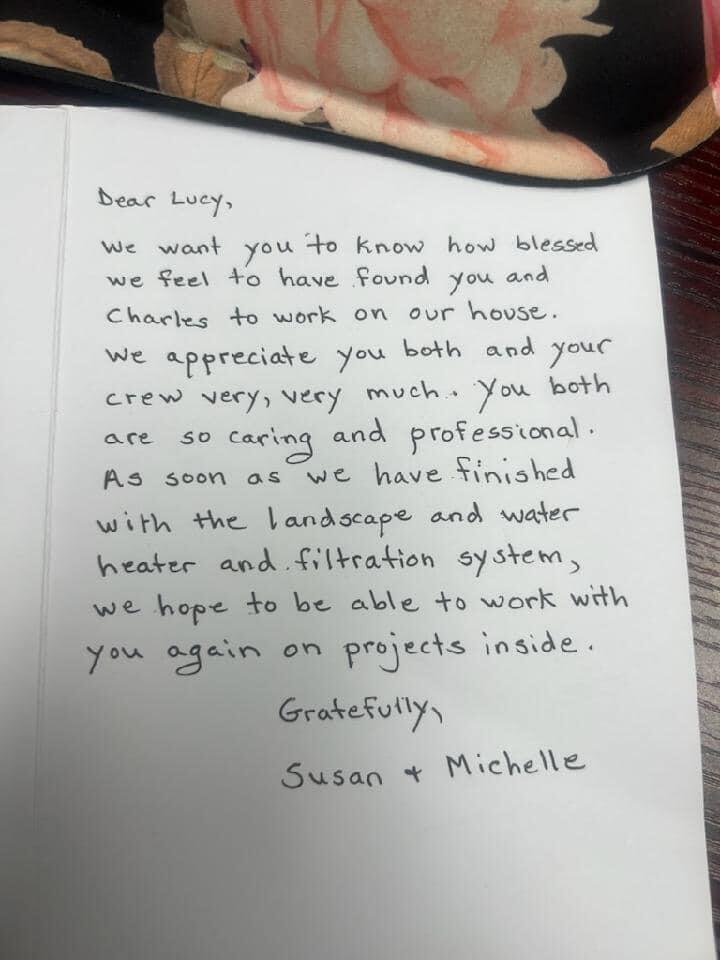 Dear Lucy,
We want you to know how blessed
we feel to have found you and
Charles to work on our house.
We appreciate you both and your
crew very, very much. You both
are so caring and professional.
As soon as we have finished
with the landscape and water
heater and filtration system,
we hope to be able to work with
you again on projects inside.
Gratefully,
Susan + Michelle